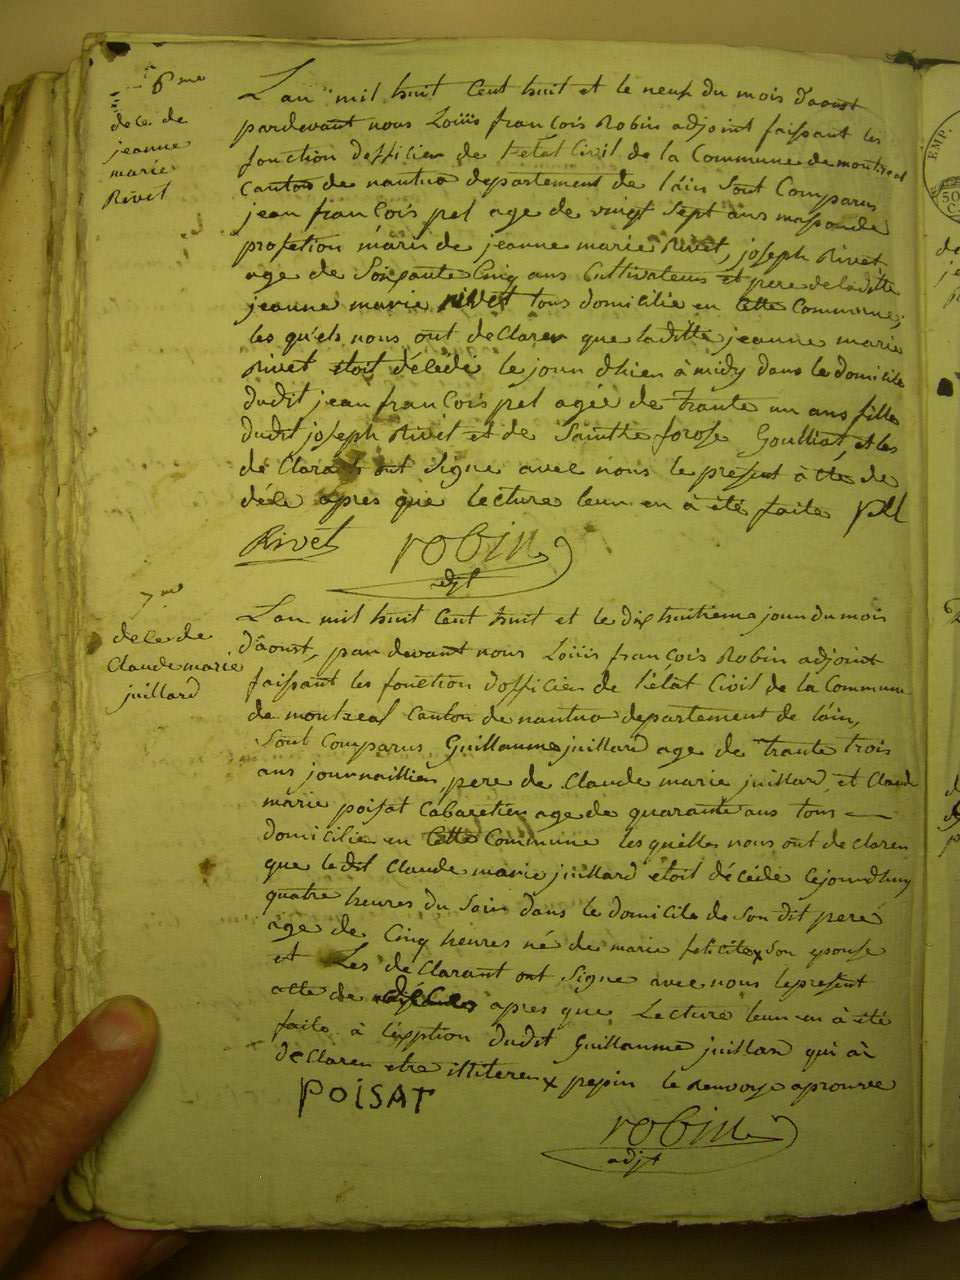 6me
dece de
jeanne
marie
Rivet
L'an mil huit Cent huit et le neuf du mois d'aoust
pardevant nous Loüis françois Robin adjoint faissant les
fonction d'officier de l'etat Civil de la Commune de montreal
Canton de nantua departement de l'ain Sont Comparus
jean françois pel age de vingt Sept ans masson de
profetion marie de jeanne marie Rivet, joseph Rivet
age de Soixante Cinq ans Cultivateur et pere de laditte
jeanne marie rivet tous domicilie en Cette Commune,
les qu'els nous ont declarer que laditte jeanne marie
Rivet etoit décédé le jour dhier à midy dans le domicile
dudit jean françois pel agée de trante un ans fille
dudit joseph Rivet et de Goulliat, et les
déclarants ont Signe avec nous le present àtte de
déce apres que lecture leur en à été faite pel
Rivet robin
adjt
7me
dece de
Claude marie
juillard
L'an mil huit Cent huit et le dix huitieme jour du mois
d'aoust, par devant nous Loüis françois Robin adjoint
faissant les fonction d'officier de l'etat Civil de la Commune
de montreal Canton de nantua departement de l'ain,
Sont Comparus Guillaume juillard age de trante trois
ans journaillier, pere de Claude marie juillard, et Claude
marie poisat Cabaretier age de quarante ans tous
domicilie en Cette Commune les quelles nous ont declarer
que ledit Claude marie juillard etoit décéde lejourdhuy
quatre heures du Soir dans le domicile de Son dit pere
age de Cinq heures né de marie felicite x Son epouse
et Les declarant ont Signe avec nous le present
atte de apres que Lecture leur en à été
faite à l'exption dudit Guillaume juillard qui à
declarer etre illiterer x pepin le Renvoye aprouvée
POISAT
robin
adjt